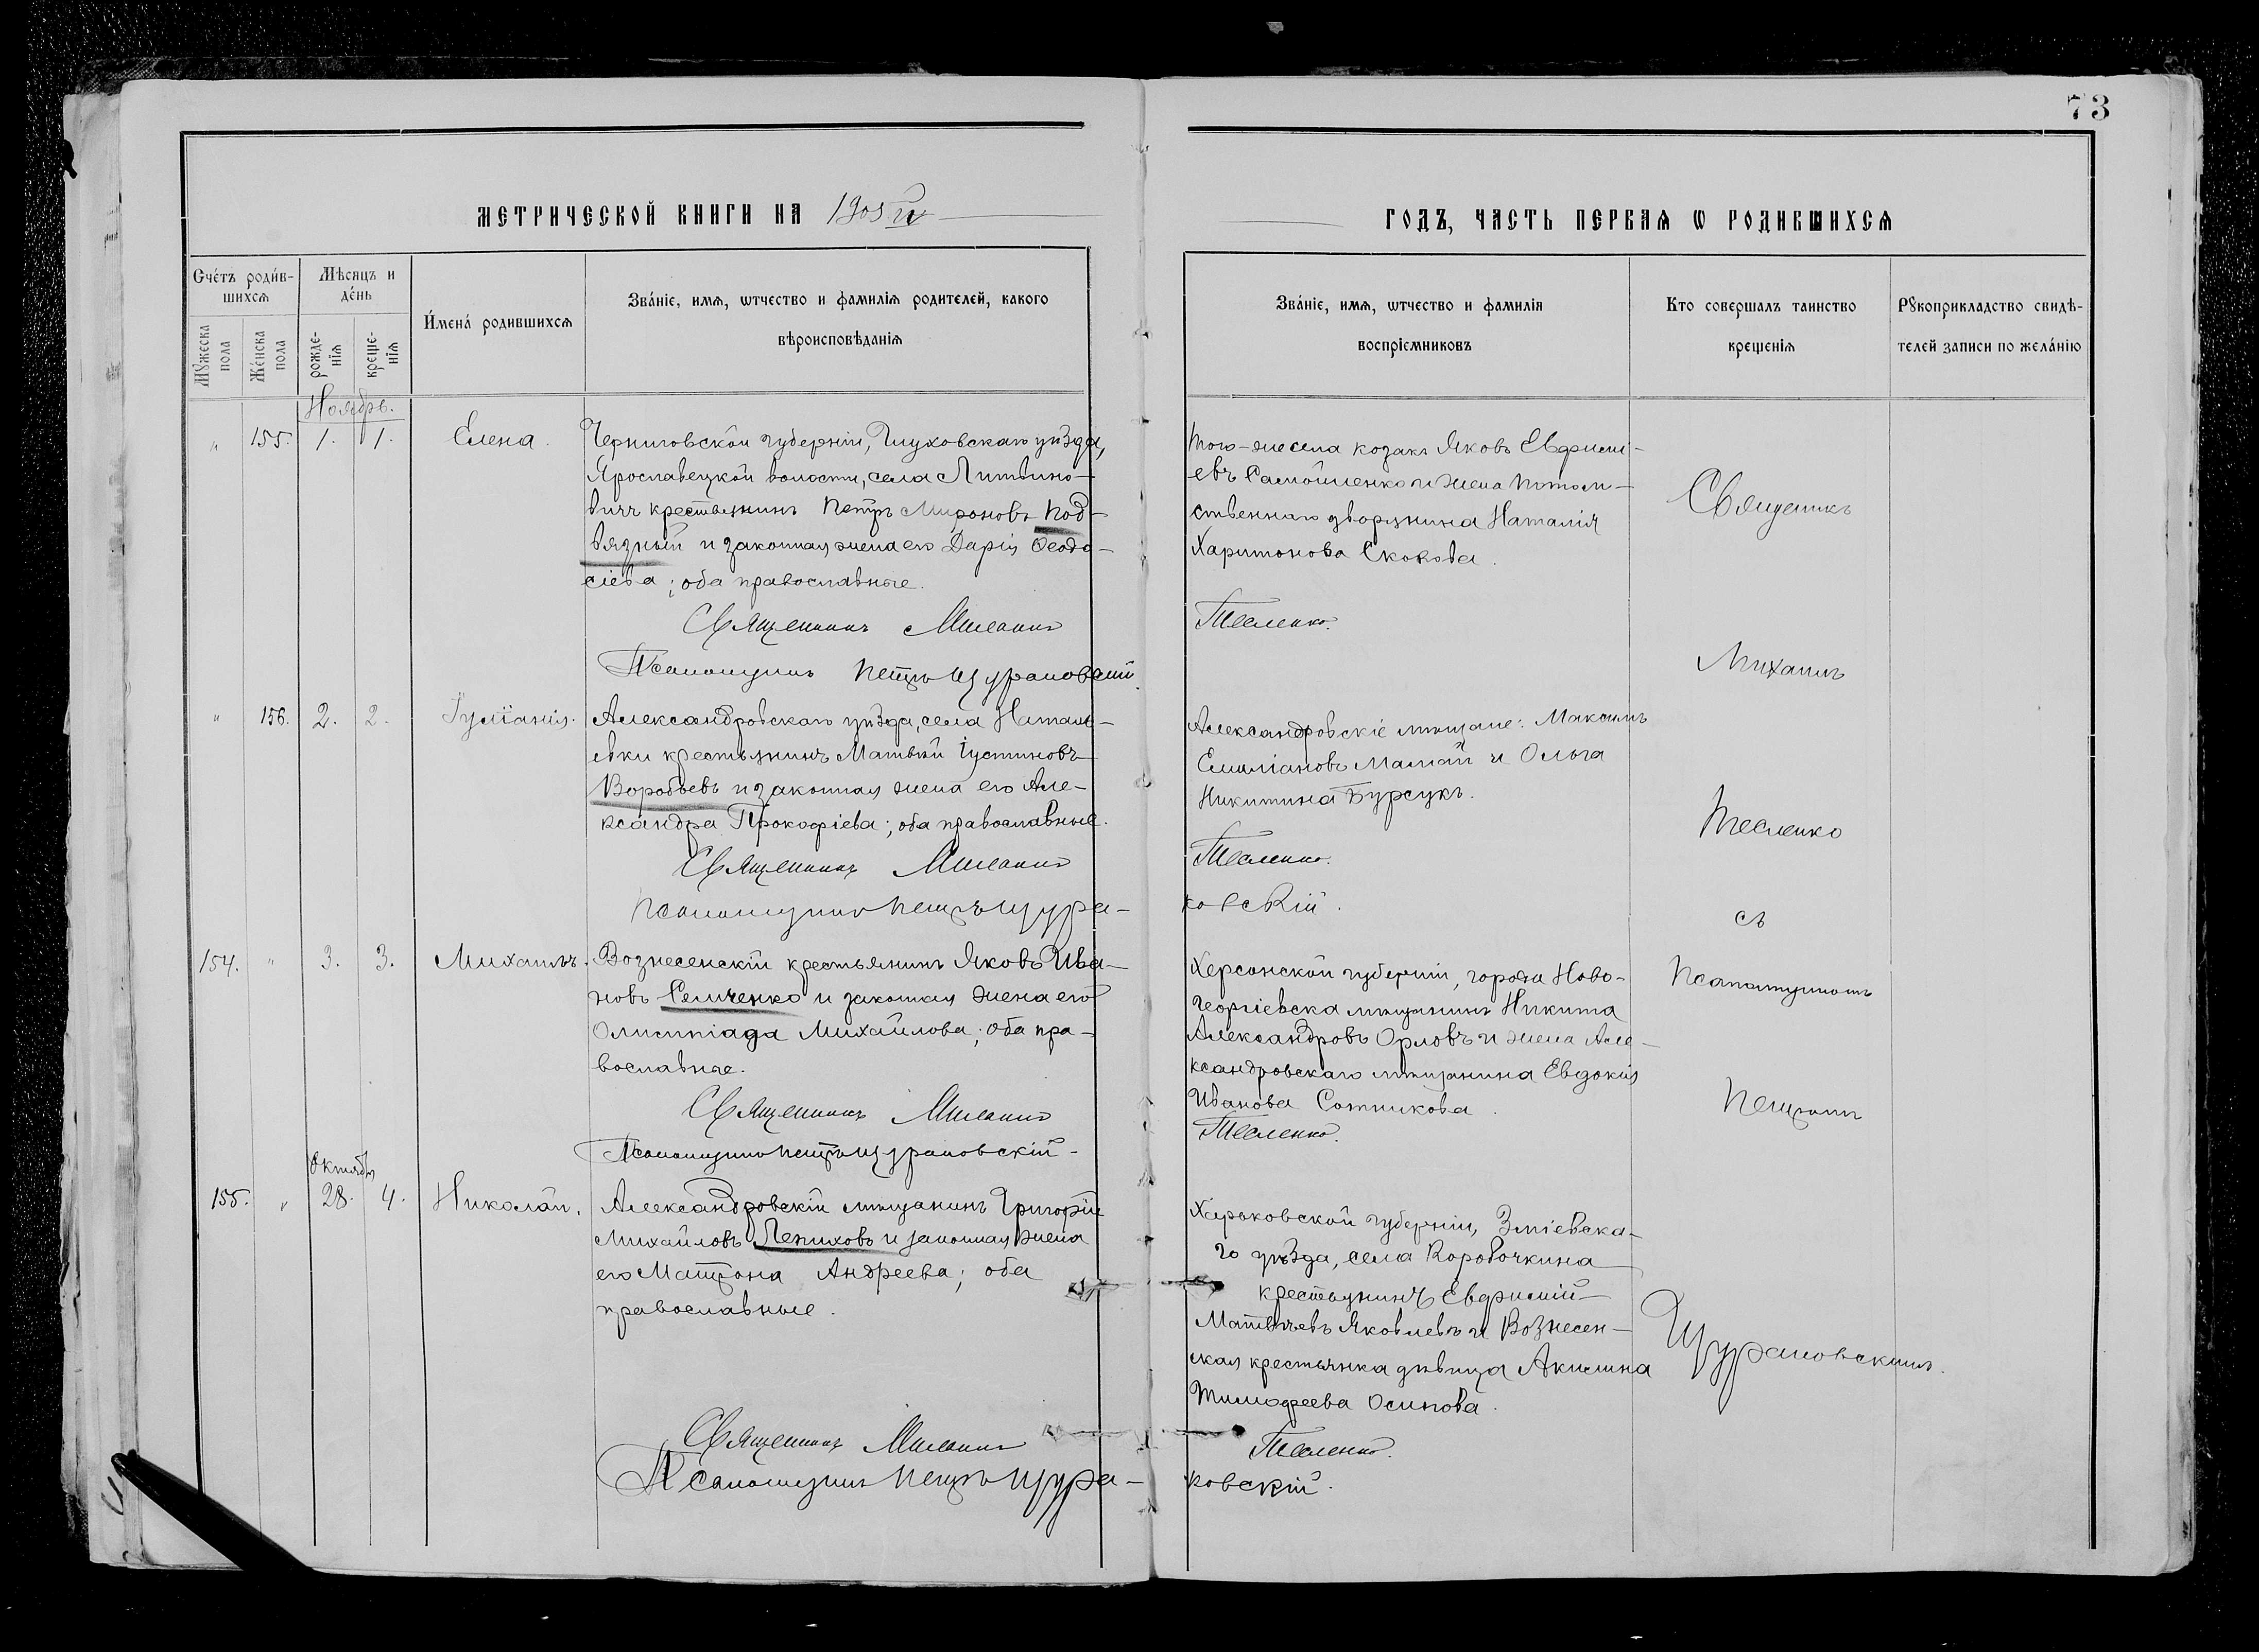 73
МЕТРИЧЕСКОЙ КНИГИ НА 1905 й
ГОДЪ, ЧАСТЬ ПЕРВАЯ Ѡ РОДИВШИХСЯ
Сче́тъ роди́в-
шихсѧ
Мѣсяцъ и
де́нь
Мꙋжеска
пола
Же́нска
пола
рожде-
нїѧ
креще-
нїѧ
И́мена́ родившихсѧ
Зва́нїе, имѧ, ѡтчество и фамилїѧ родителей, какого
вѣроисповѣданїѧ
Зва́нїе, имѧ, ѡтчество и фамилїя
воспрїемниковъ
Кто совершалъ таинство
крещенїѧ
Рꙋкоприкладство свидѣ-
телей записи по жела́нїю
Ноябрь.
" 155. 1. 1. Елена.
Черниговской губерніи, Глуховскаго уѣзда,
Ярославецкой волости, села Литвино-
вичъ крестьянинъ Петръ Мироновъ Под-
вязный и законная жена его Дарія Ѳеодо-
сіева; оба православные.
Священникъ Михаилъ
Псаломщикъ Петръ Щураковскій.
Того-же села козакъ Яковъ Евфимі-
евъ Самойленко и жена потом-
ственнаго дворянина Наталія
Харитонова Скокова.
Тесленко.
" 156. 2. 2. Іуліанія.
Александровскаго уѣзда, села Наталь-
евки крестьянинъ Матвѣй Іустиновъ
Воробьевъ и законная жена его Але-
ксандра Прокофіева; оба православные.
Священникъ Михаилъ
Псаломщикъ Петръ Щура-
Александровскіе мѣщане: Максимъ
Емиліановъ Малый и Ольга
Никитина Бурсукъ.
Тесленко.
ковскій.
154. " 3. 3. Михаилъ.
Вознесенскій крестьянинъ Яковъ Ива-
новъ Семченко и законная жена его
Олимпіада Михайлова; оба пра-
вославные.
Священникъ Михаилъ
Псаломщикъ Петръ Щураковскій.
Херсонской губерніи, города Ново-
георгіевска мѣщанинъ Никита
Александровъ Орловъ и жена Але-
ксандровскаго мѣщанина Евдокія
Иванова Сотникова.
Тесленко.
Октябрь
155. " 28. 4. Николай.
Александровскій мѣщанинъ Григорій
Михайловъ Лениховъ и законная жена
его Матрона Андреева; оба
православные.
Священникъ Михаилъ
Псаломщикъ Петръ Щура-
Харьковской губерніи, Зміевска-
го уѣзда, села Коробочкина
крестьянинъ Евфимій
Матвѣевъ Яковлевъ и Вознесен-
ская крестьянка дѣвица Акилина
Тимофеева Осипова.
Тесленко.
ковскій.
Священникъ
Михаилъ
Тесленко
съ
Псаломщикомъ
Петромъ
Щураковскимъ.